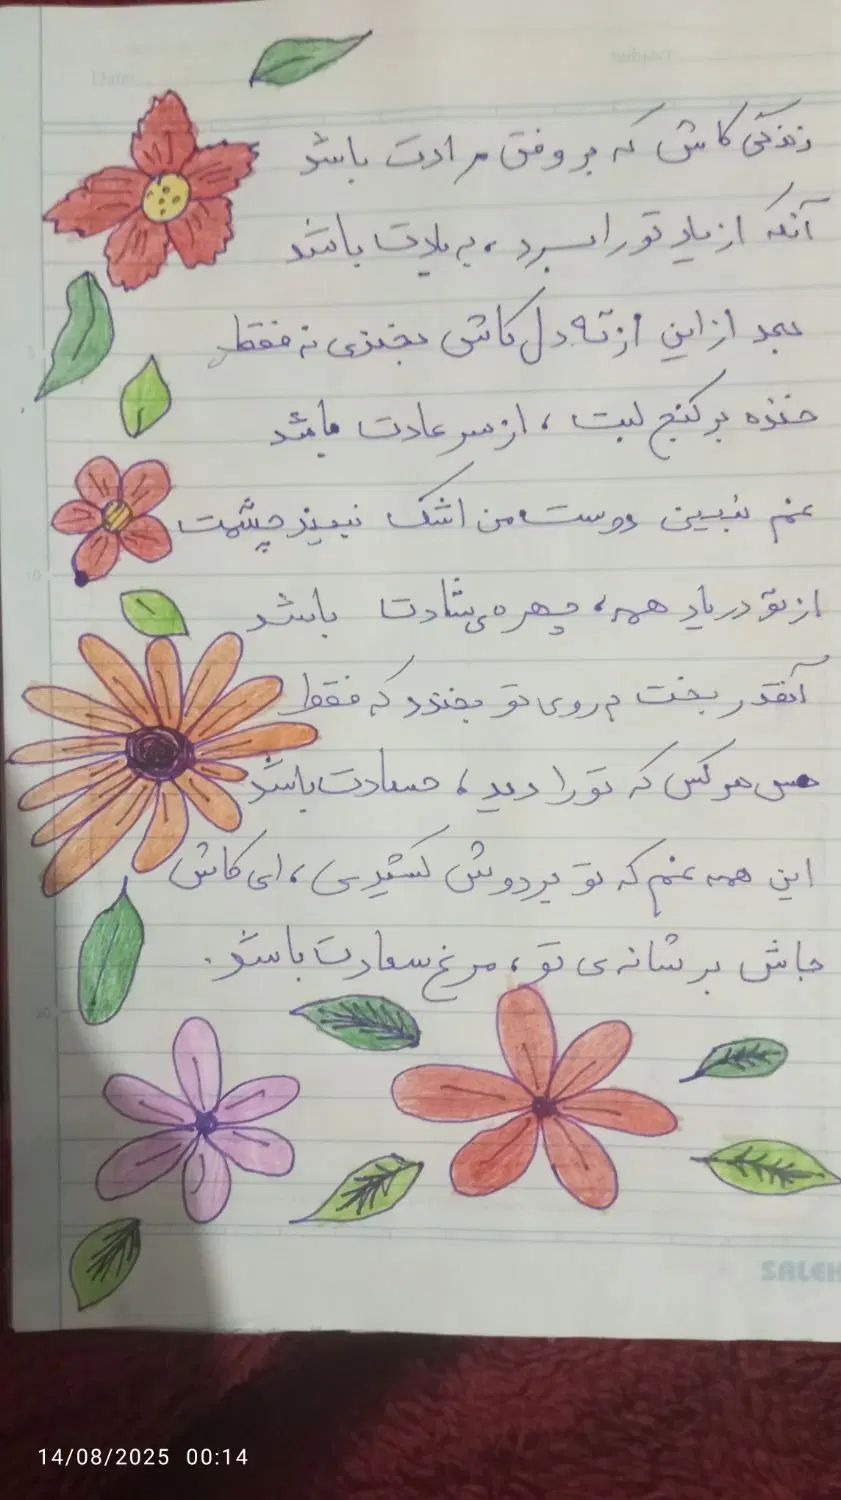 Date:
Subject:
زندگی کاش که بر وفق مرادت باشد
آنکه از یاد تو را میبرد، به یادت باشد
بعد از این از ته دل کاش بخندی نه فقط
خنده بر کنج لبت، از سر عادت باشد
غم نبینی دوست من اشک نبیند چشمت
از تو در یاد همه، چهره ی شادت باشد
آنقدر بخت به روی تو بخندد که فقط
حس هر کس که تو را دید، حسادت باشد
این همه غم که تو بر دوش کشیدی، ای کاش
جاش بر شانه ی تو، مرغ سعادت باشد.
SALEH
14/08/2025 00:14